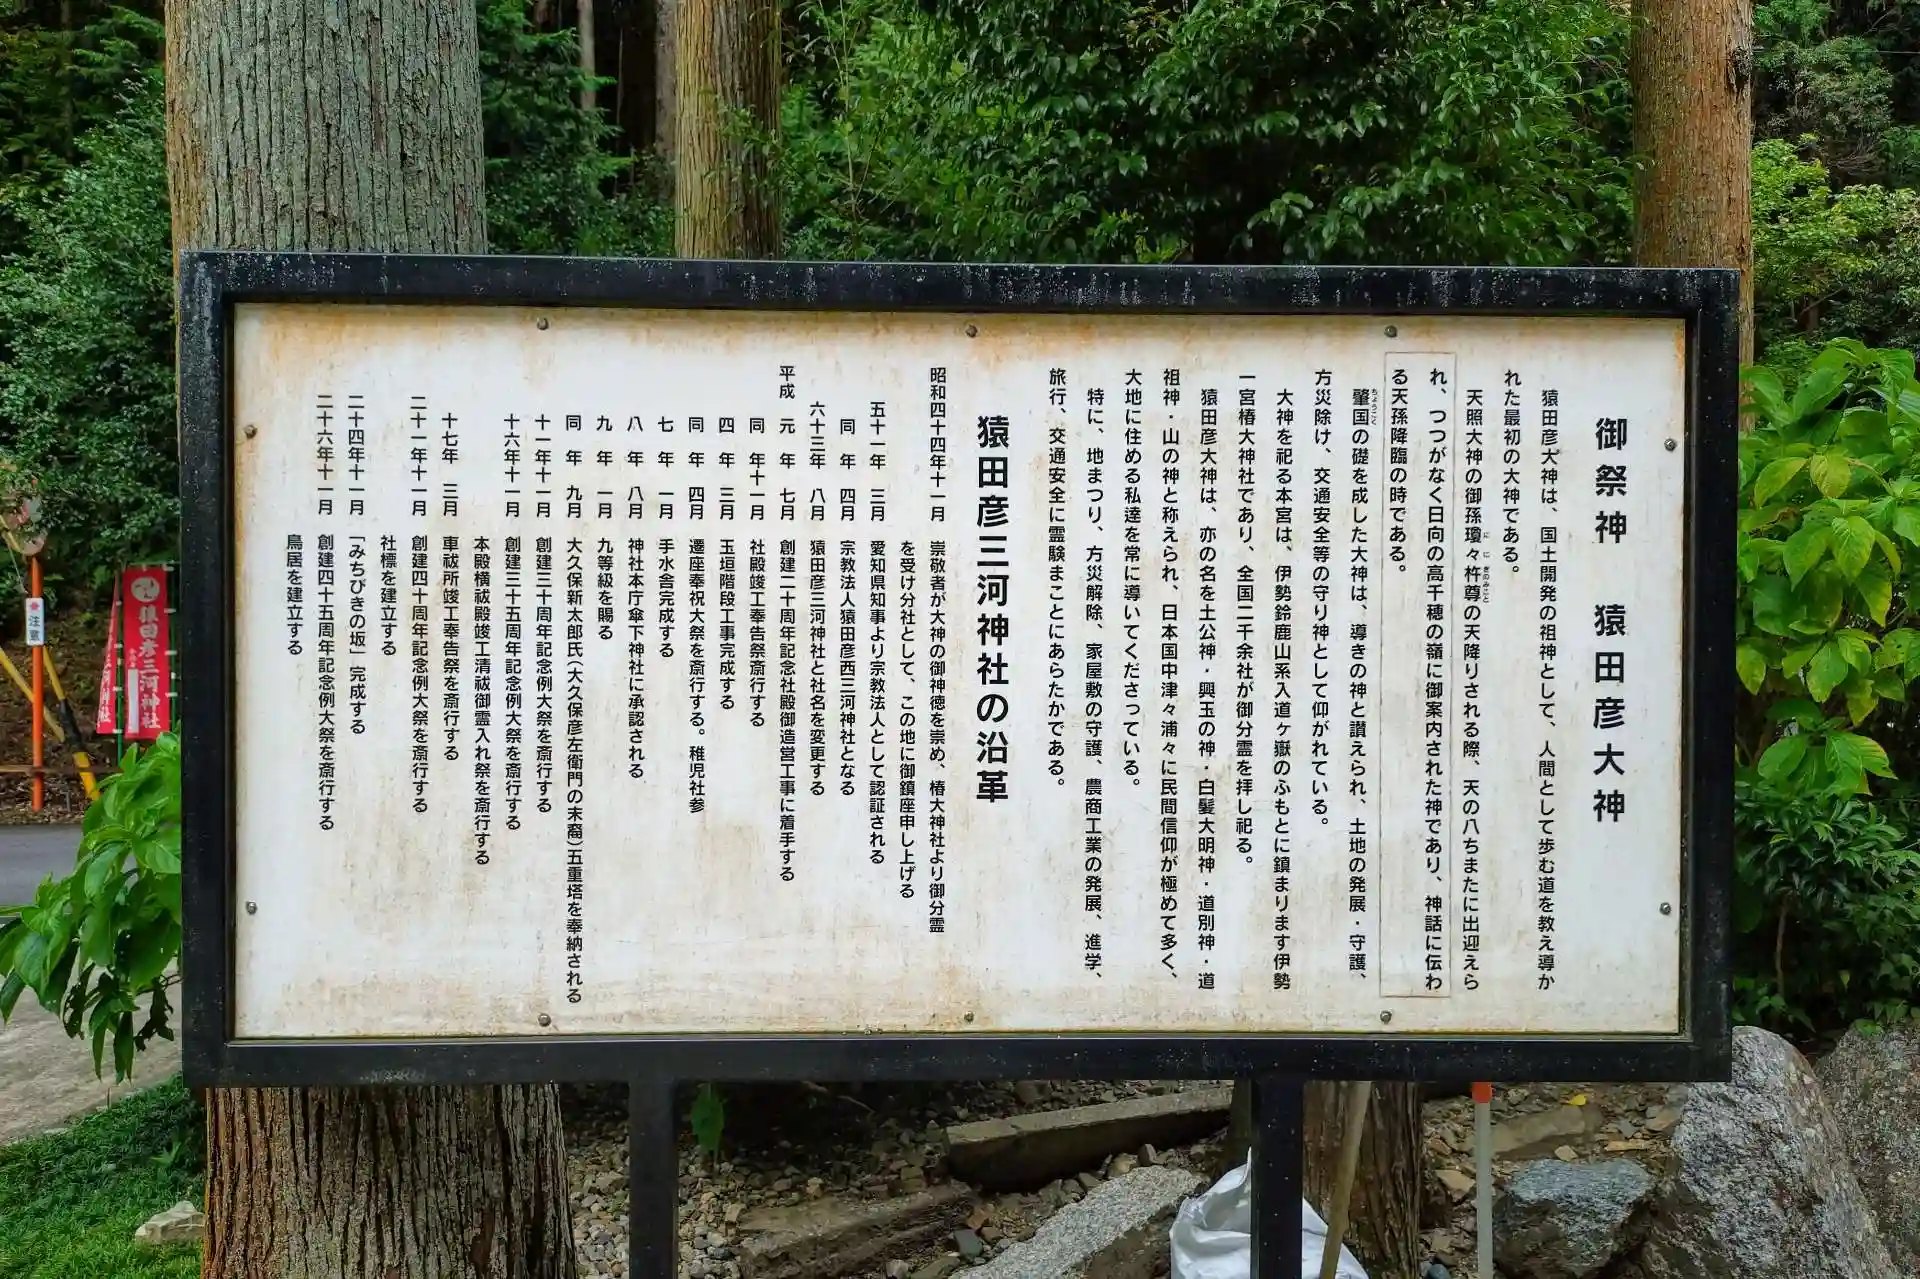 御祭神　猿田彦大神
猿田彦大神は、国土開発の祖神として、人間として歩む道を教え導か
れた最初の大神である。
天照大神の御孫瓊々杵尊の天降りされる際、天の八ちまたに出迎えら
れ、つつがなく日向の高千穂の嶺に御案内された神であり、神話に伝わ
る天孫降臨の時である。
肇国の礎を成した大神は、導きの神と讃えられ、土地の発展・守護、
方災除け、交通安全等の守り神として仰がれている。
大神を祀る本宮は、伊勢鈴鹿山系入道ヶ嶽のふもとに鎮まります伊勢
一宮椿大神社であり、全国二千余社が御分霊を拝し祀る。
猿田彦大神は、亦の名を土公神・興玉の神・白髪大明神・道別神・道
祖神・山の神と称えられ、日本国中津々浦々に民間信仰が極めて多く、
大地に住める私達を常に導いてくださっている。
特に、地まつり、方災解除、家屋敷の守護、農商工業の発展、進学、
旅行、交通安全に霊験まことにあらたかである。
猿田彦三河神社の沿革
昭和四十四年十一月　崇敬者が大神の御神徳を崇め、椿大神社より御分霊
を受け分社として、この地に御鎮座申し上げる
五十一年　三月　愛知県知事より宗教法人として認証される
同　年　四月　宗教法人猿田彦西三河神社となる
六十三年　八月　猿田彦三河神社と社名を変更する
平成　元　年　七月　創建二十周年記念社殿御造営工事に着手する
同　年十一月　社殿竣工奉告祭斎行する
四　年　三月　玉垣階段工事完成する
同　年　四月　遷座奉祝大祭を斎行する。稚児社参
七　年　一月　手水舎完成する
八　年　八月　神社本庁傘下神社に承認される
九　年　一月　九等級を賜る
同　年　九月　大久保新太郎氏(大久保彦左衛門の末裔)五重塔を奉納される
十一年十一月　創建三十周年記念例大祭を斎行する
十六年十一月　創建三十五周年記念例大祭を斎行する
本殿横祓殿竣工清祓御霊入れ祭を斎行する
十七年　三月　車祓所竣工奉告祭を斎行する
二十一年十一月　創建四十周年記念例大祭を斎行する
社標を建立する
二十四年十一月　「みちびきの坂」完成する
二十六年十一月　創建四十五周年記念例大祭を斎行する
鳥居を建立する
ちょうこく
ににぎのみこと
猿田彦三河神社
注意